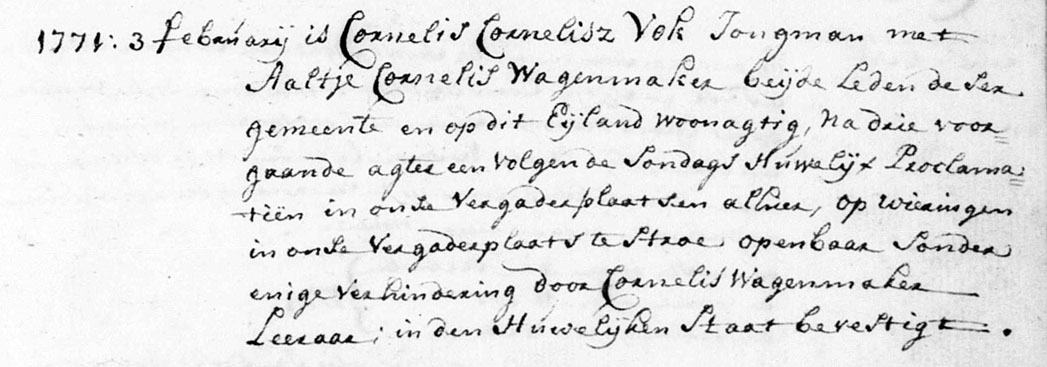 1771: 3 februarij is Cornelis Cornelisz Vok Jongman met
Aaltje Cornelis Wagenmaker beijde Leden deser
gemeente en op dit Eijland woonagtig, Na drie voor=
gaande agter een volgende Sondags Huwelijx Proclama=
tiën in onse Vergaderplaatsen alhier, op wieringen
in onse Vergaderplaats te Stroe openbaar Sonder
enige Verhindering door Cornelis Wagenmaker
Leeraar; in den Huwelijken Staat bevestigt.